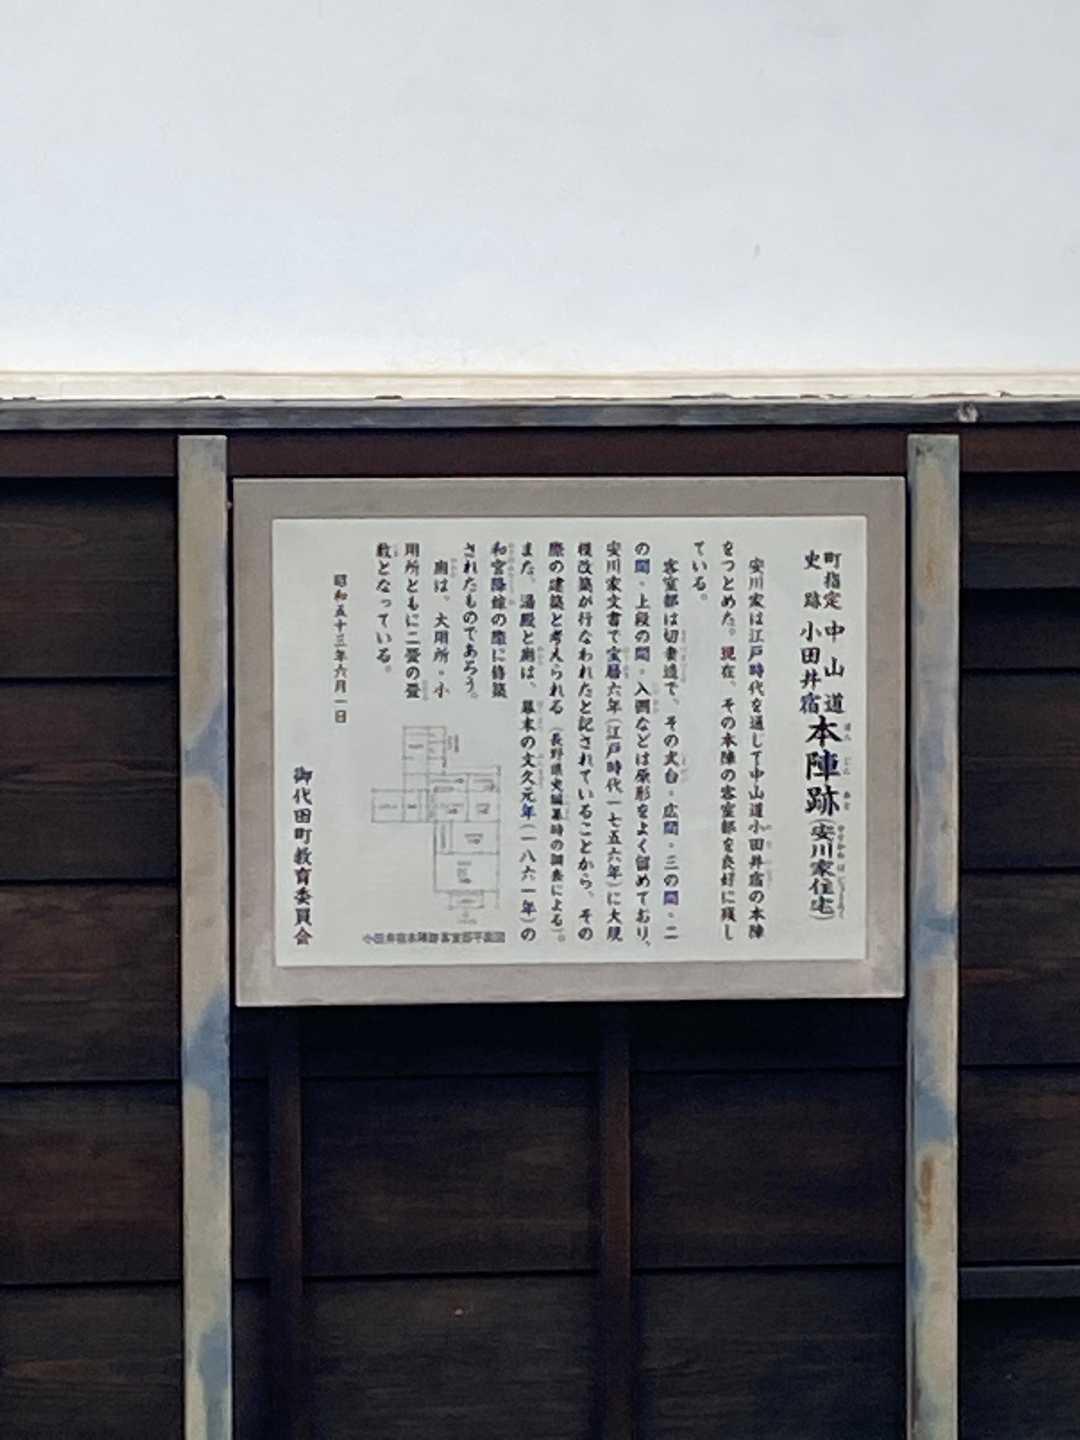 町指定
史跡
中山道
小田井宿
本陣跡(安川家住宅)
安川家は江戸時代を通じて中山道小田井宿の本陣
をつとめた。現在、その本陣の客室部を良好に残し
ている。
客室部は切妻造で、その式台・広間・三の間・二
の間・上段の間・入側などは原形をよく留めており、
安川家文書で宝暦六年(江戸時代一七五六年)に大規
模改築が行なわれたと記されていることから、その
際の建築と考えられる(長野県史編纂時の調査による)。
また、湯殿と厠は、幕末の文久元年(一八六一年)の
和宮降嫁の際に修築
されたものであろう。
厠は、大用所・小
用所ともに二畳の畳
敷となっている。
小田井宿本陣跡客室部平面図
昭和五十三年六月一日
御代田町教育委員会